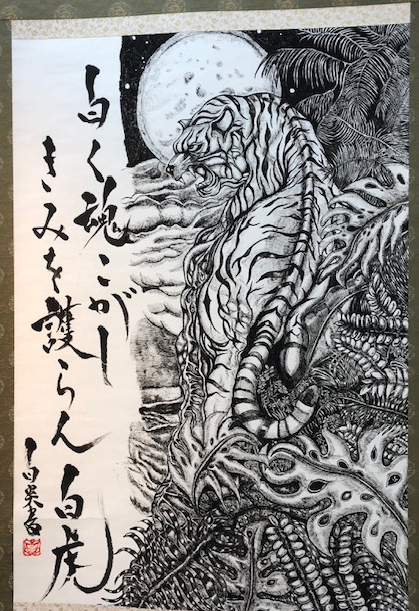 白く魂こがし
きみを護らん白虎